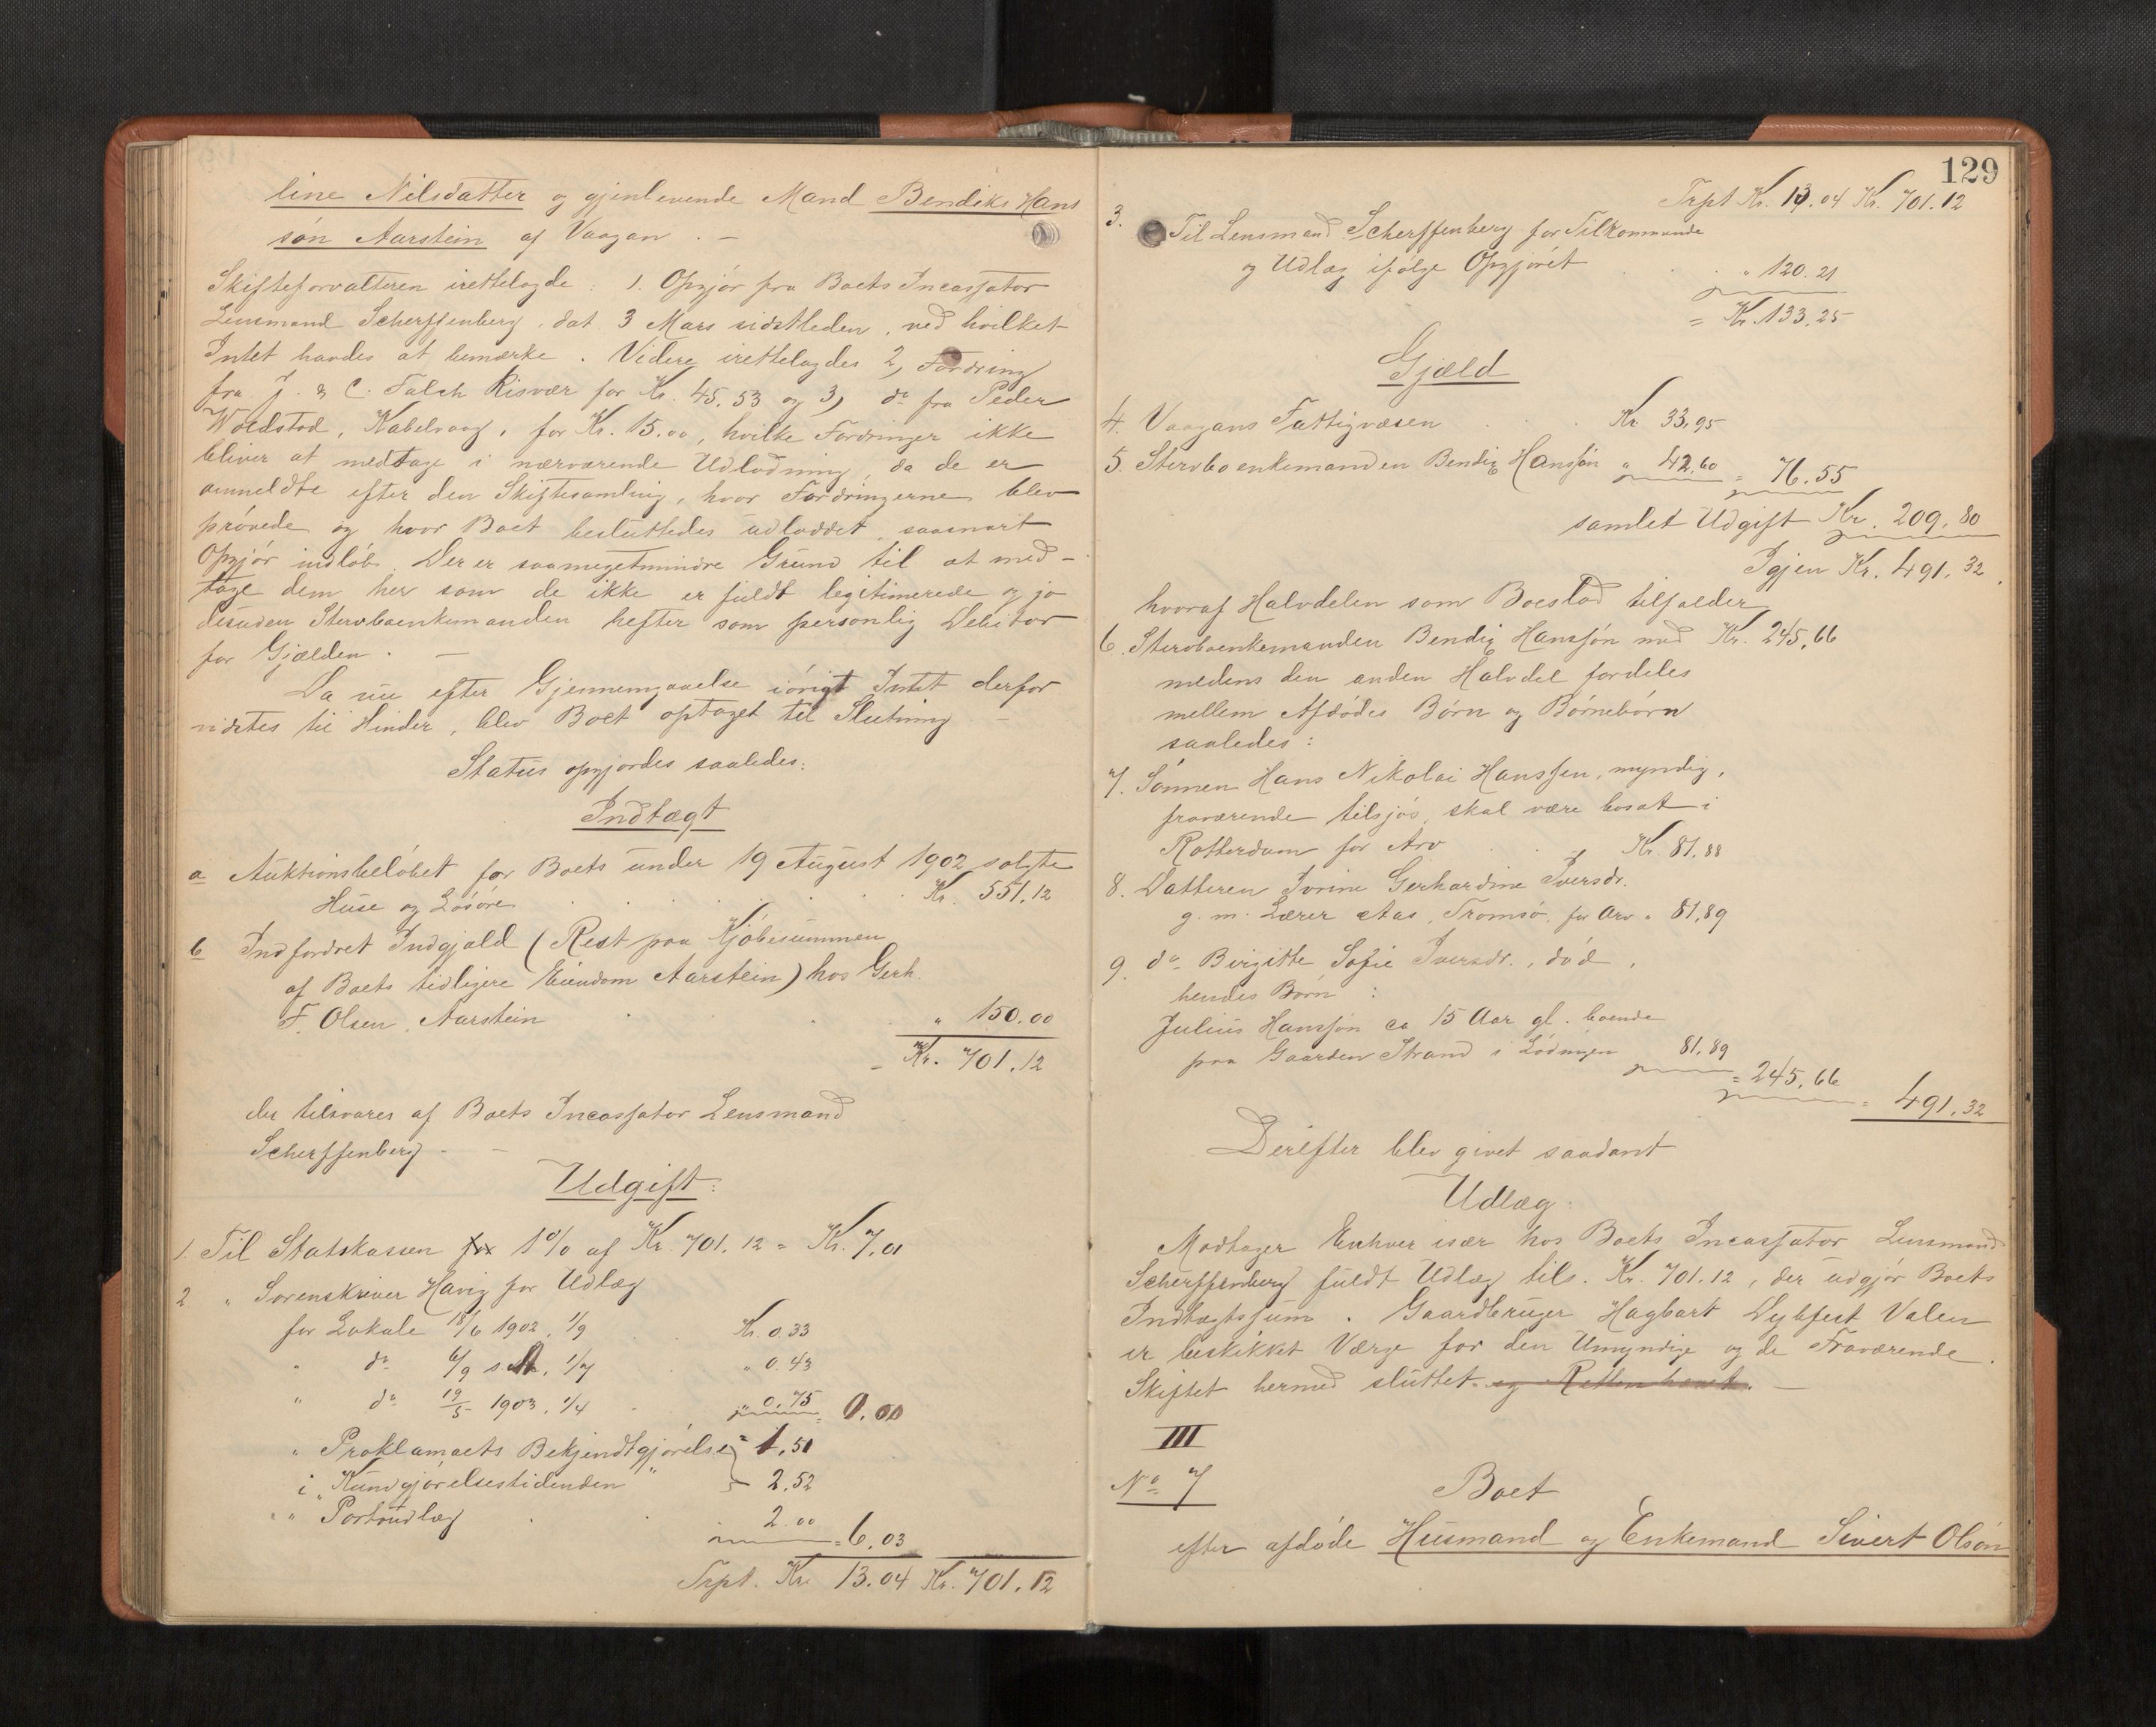 line Nilsdatter og gjenlevende Mand Bendiks Hans
søn Aarstein af Vaagan. –
Skifteforvalteren irettelagde: 1. Opgjør fra Boets Incassator
Lensmand Scherffenberg, dat 3 Mars sidstleden, ved hvilket
Intet havdes at bemærke. Videre irettelagdes 2, Fordring
fra J. & C. Falch Risvær for Kr. 45.53 og 3) do fra Peder
Woldstad, Kabelvaag, for Kr. 15.00, hvilke Fordringer ikke
bliver at medtage i nærværende Udlodning, da de er
anmeldte efter den Skiftesamling, hvor Fordringerne blev
prøvede og hvor Boet besluttedes udloddet, saasnart
Opgjør indløb. Der er saameget mindre Grund til at med-
tage dem her som de ikke er fuldt legitimerede og jo
desuden Stervboenkemanden hefter som personlig Debitor
for Gjælden. –
Da nu efter Gjennemgaaelse iørigt Intet derfor
vistes til Hinder, blev Boet optaget til Slutning –
Status opgjordes saaledes:
Indtægt
a Auktionsbeløbet for Boets under 19 August 1902 solgte
Huse og Løsøre . . . . . . Kr. 551.12
b Indfordret Indgjæld (Rest paa Kjøbesummen
af Boets tidligere Eiendom Aarstein) hos Gerh.
F. Olsen, Aarstein . . " 150.00
= Kr. 701.12
der tilsvares af Boets Incassator Lensmand
Scherffenberg. –
Udgift:
1. Til Statskassen for 1% af Kr. 701.12 = Kr. 7.01
2 " Sorenskriver Havig for Udlæg
for Lokale 18/6 1902, 1/9 . . Kr. 0.33
" do 6/9 1/7 . " 0.43
" do 19/5 1903, 1/4 . " 0.75 = 0.00
" Proklamaets Bekjendtgjørelse = 1.51
i "Kundgjørelsestidenden" 2.52
" " Portoudlæg . . 2.00
= 6.03
Trpt. Kr. 13.04 Kr. 701.12
129
Trpt Kr. 13.04 Kr. 701.12
3. Til Lensmand Scherffenberg for Tilkommende
og Udlæg ifølge Opgjøret . . " 120.21
= Kr. 133.25
Gjæld
4. Vaagans Fattigvæsen . . . Kr. 33.95
5. Stervboenkemanden Bendix Hanssøn " 42.60 = 76.55
samlet Udgift Kr. 209.80
Igjen Kr. 491.32
hvoraf Halvdelen som Boeslod tilfalder
6. Stervboenkemanden Bendix Hanssøn med Kr. 245.66
medens den anden Halvdel fordeles
mellem Afdødes Børn og Børnebørn
saaledes:
7. Sønnen Hans Nikolai Hanssen, myndig,
fraværende tilsjøs, skal være bosat i
Rotterdam for Arv . . . Kr. 81.88
8. Datteren Jorine Gerhardine Iversdr.
g. m. Lærer Aas, Tromsø, for Arv " 81.89
9. do Birgitte Sofie Iversdr., død,
hendes Børn :
Julius Hanssøn ca 15 Aar gl. boende
paa Gaarden Strand i Lødingen 81.89
= 245.66
= 491.32
Derefter blev givet saadant
Udlæg:
Modtager Enhver især hos Boets Incassator Lensmand
Scherffenberg fuldt Udlæg tils. Kr. 701.12, der udgjør Boets
Indtægtssum. Gaardbruger Hagbart Dybfest Valen
er beskikket Værge for den Umyndige og de Fraværende.
Skiftet hermed sluttet og Retten hævet. –
III
No 7
Boet
efter afdøde Husmand og Enkemand Sivert Olsøn